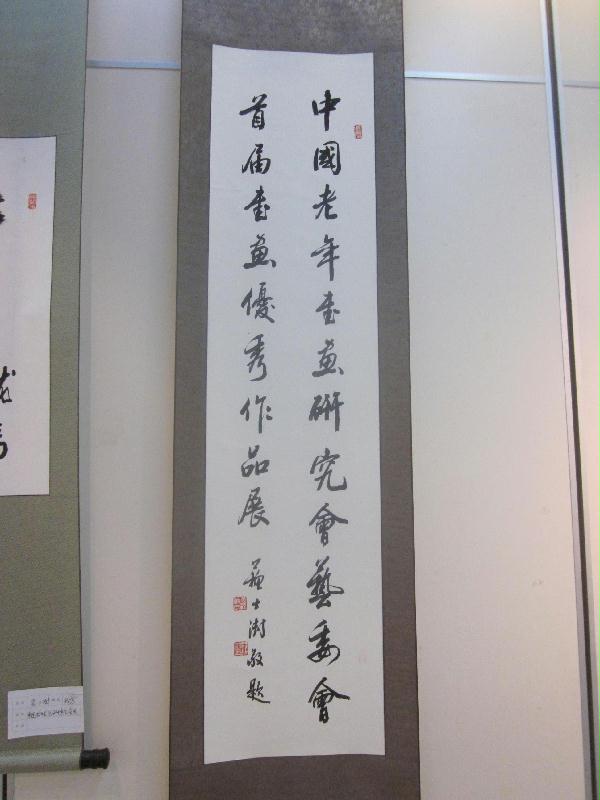 中國老年書畫研究會藝委會
首届書畫優秀作品展
蘇士澍敬題